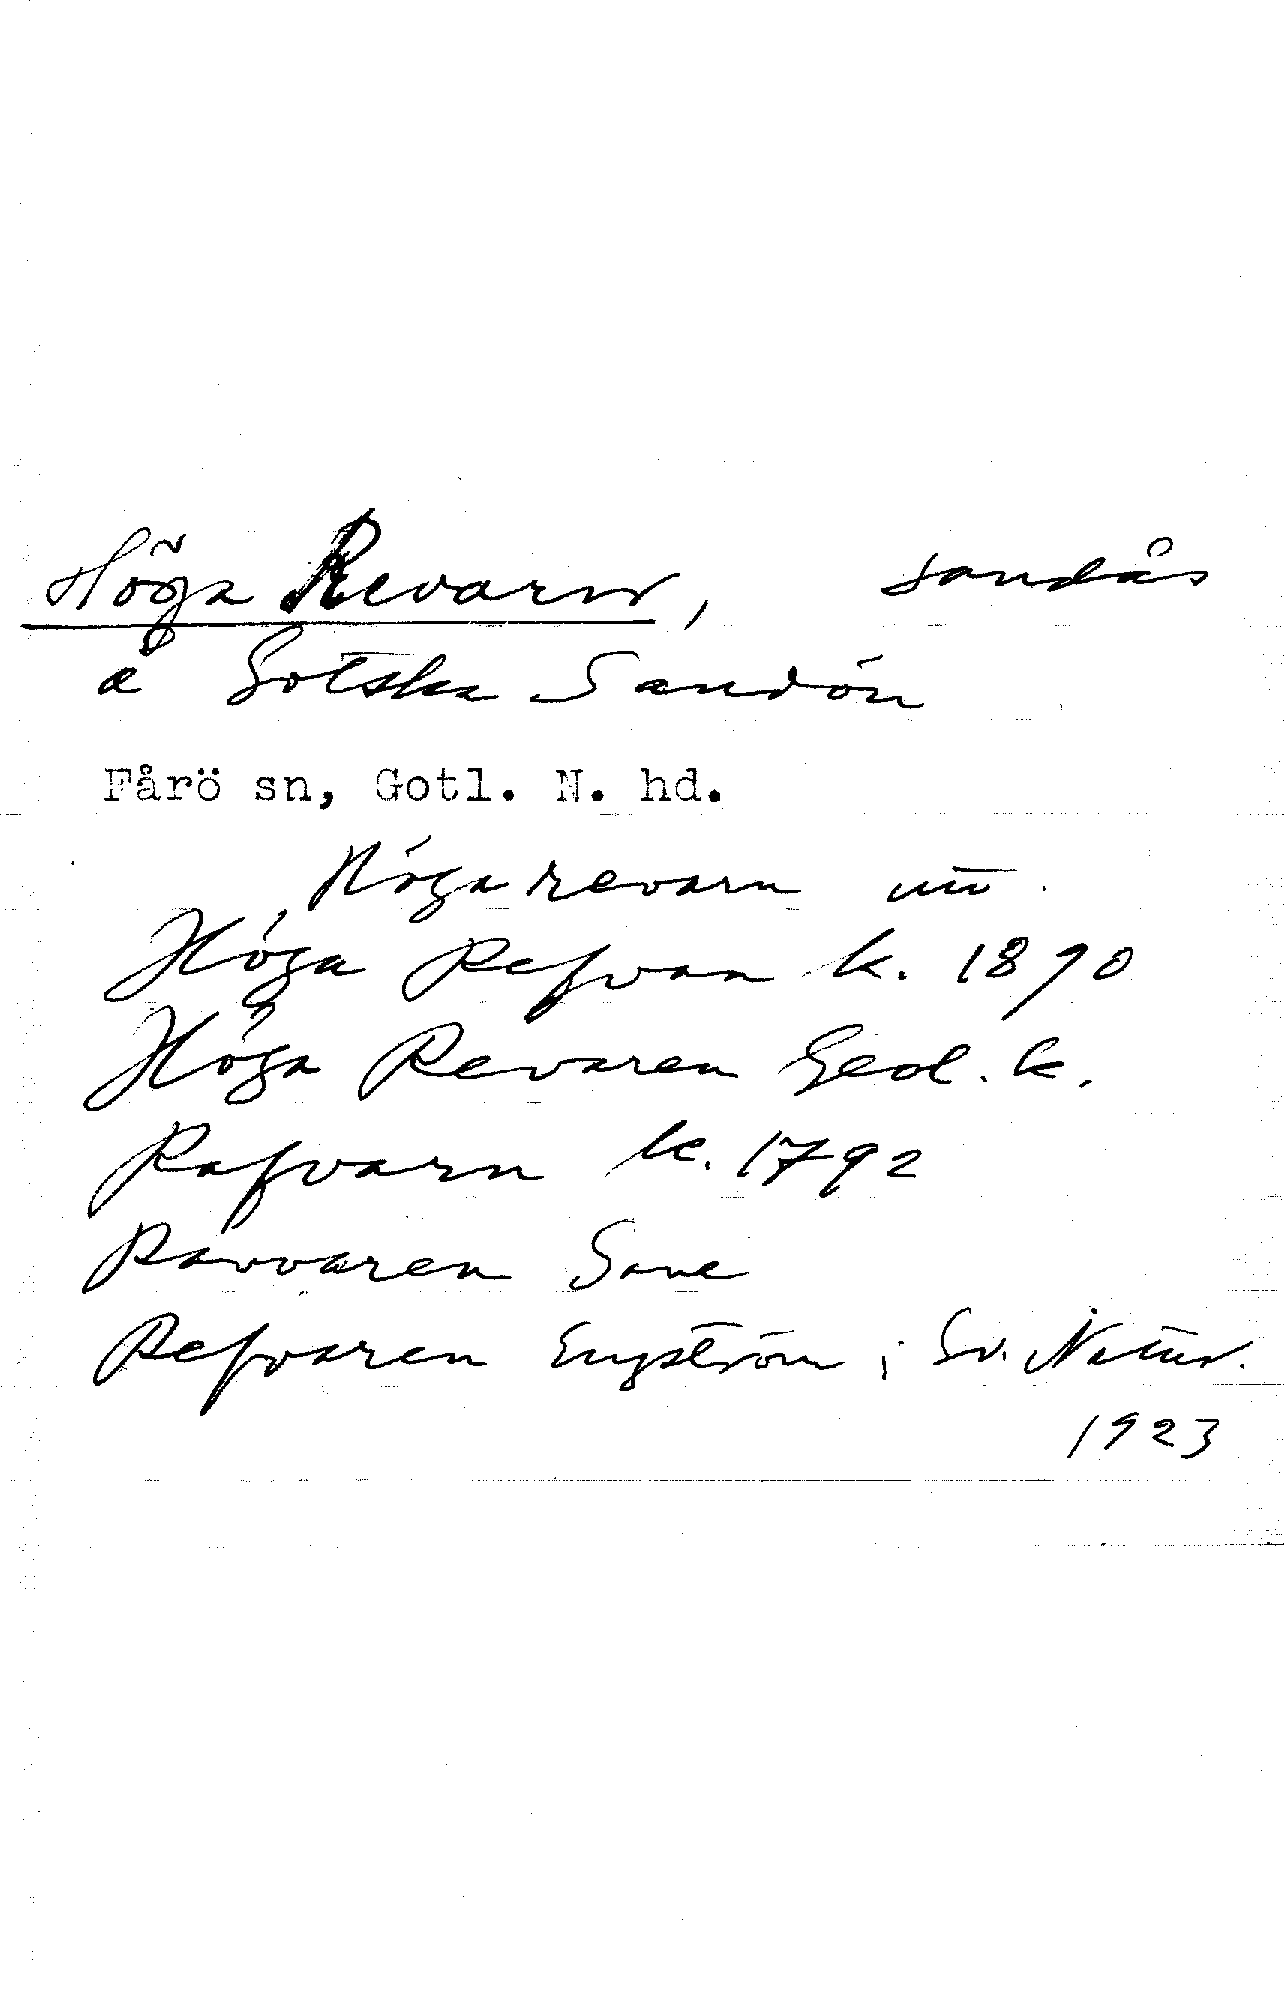 Höga Revarn, sandås
å Gotska Sandön
Fårö sn, Gotl. N. hd.
Höga revarn
Höga Refvan k. 1890
Höga Revaren Geol. k.
Rafvarn k. 1792
Ravvaren Save
Refvaren Engström i Sv. Natur.
1923